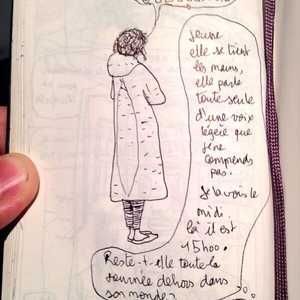 jeune
elle se tient
les mains,
elle parle
toute seule
d'une voix
légère que
je ne
comprends
pas.
Je la vois le
midi
là il est
15h00.
Reste-t-elle toute la
journée dehors dans
son monde